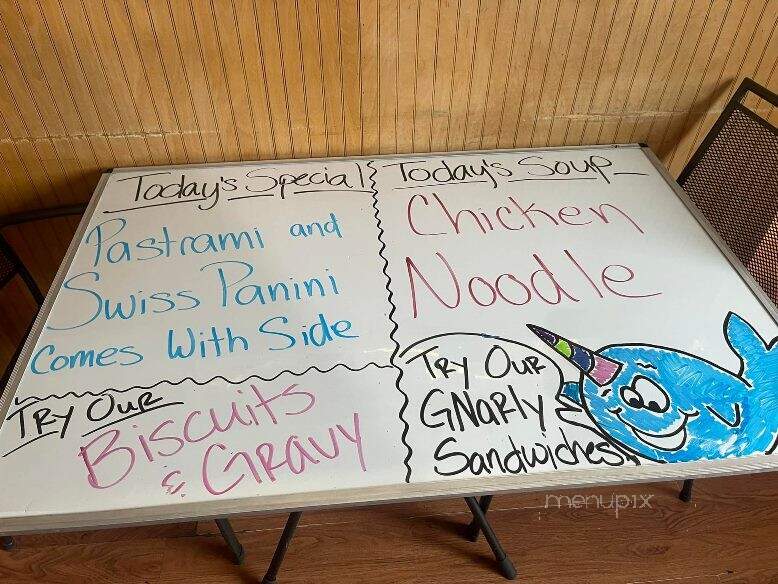 Today's Special
Pastrami and
Swiss Panini
Comes With Side
Today's Soup
Chicken
Noodle
Try Our
Biscuits
& Gravy
Try Our
Gnarly
Sandwiches
menupix